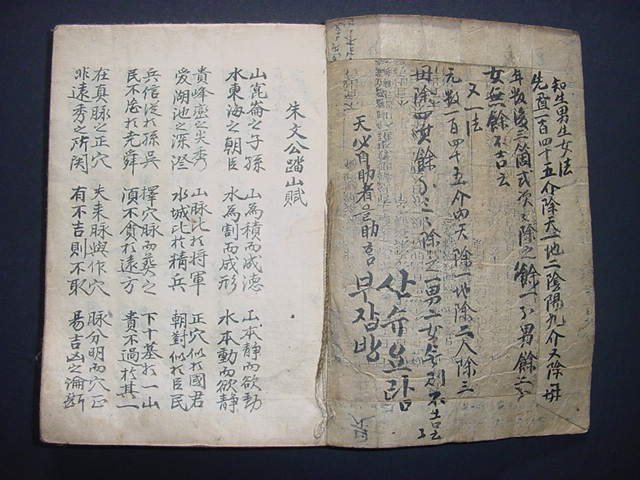 知生男生女法
先置一百四十五介除天一地二陰陽九介又除母
年數後三箇式次次除之餘一 男餘二
女無餘不吉云
又一法
元數一百四十五介內天除一地除二人除三
母除四 餘 除之 男二女 不吉云
天必自助者之助言
산슈요람
부잠방
朱文公踏山賦
山崑崙之子孫 山為積而成德 山本靜而欲動
水東海之朝臣 水為割而成形 水本動而欲靜
貴峰巒之尖秀 山脉比於將軍 正穴似於國君
愛湖池之深澄 水城比於 兵 朝對似於臣民
兵信從於孫吳 擇穴脉而葬之 下十墓於一山
民不 於堯舜 須不貪於遠方 貴不過於其一
在真脉之正穴 失來脉與作穴 脉分明而穴正
非遠秀之所関 有不吉則不取 易吉凶之論斷